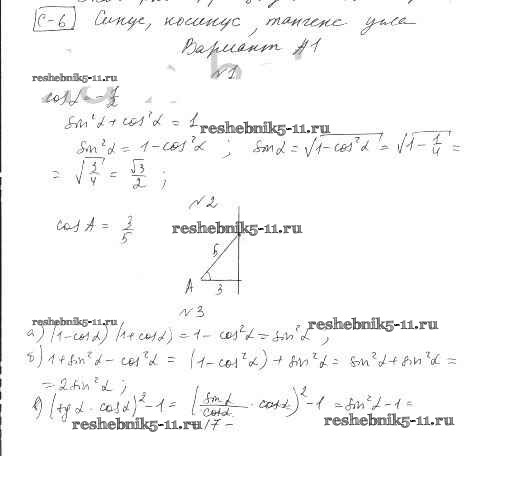 С-6 Синус, косинус, тангенс угла
Вариант №1
№1
reshebnik5-11.ru
cosα = -1/2
sin²α + cos²α = 1
reshebnik5-11.ru
sin²α = 1 - cos²α ; sinα = √(1 - cos²α) = √(1 - 1/4) =
= √(3/4) = √3/2 ;
№2
cos A = 3/5
reshebnik5-11.ru
5
A
3
№3
reshebnik5-11.ru
reshebnik5-11.ru
а) (1-cosα)(1+cosα) = 1 - cos²α = sin²α ;
б) 1 + sin²α - cos²α = (1 - cos²α) + sin²α = sin²α + sin²α =
= 2sin²α ;
в) (tgα · cosα)² - 1 = (sinα/cosα · cosα)² - 1 = sin²α - 1 =
reshebnik5-11.ru
-17-
reshebnik5-11.ru